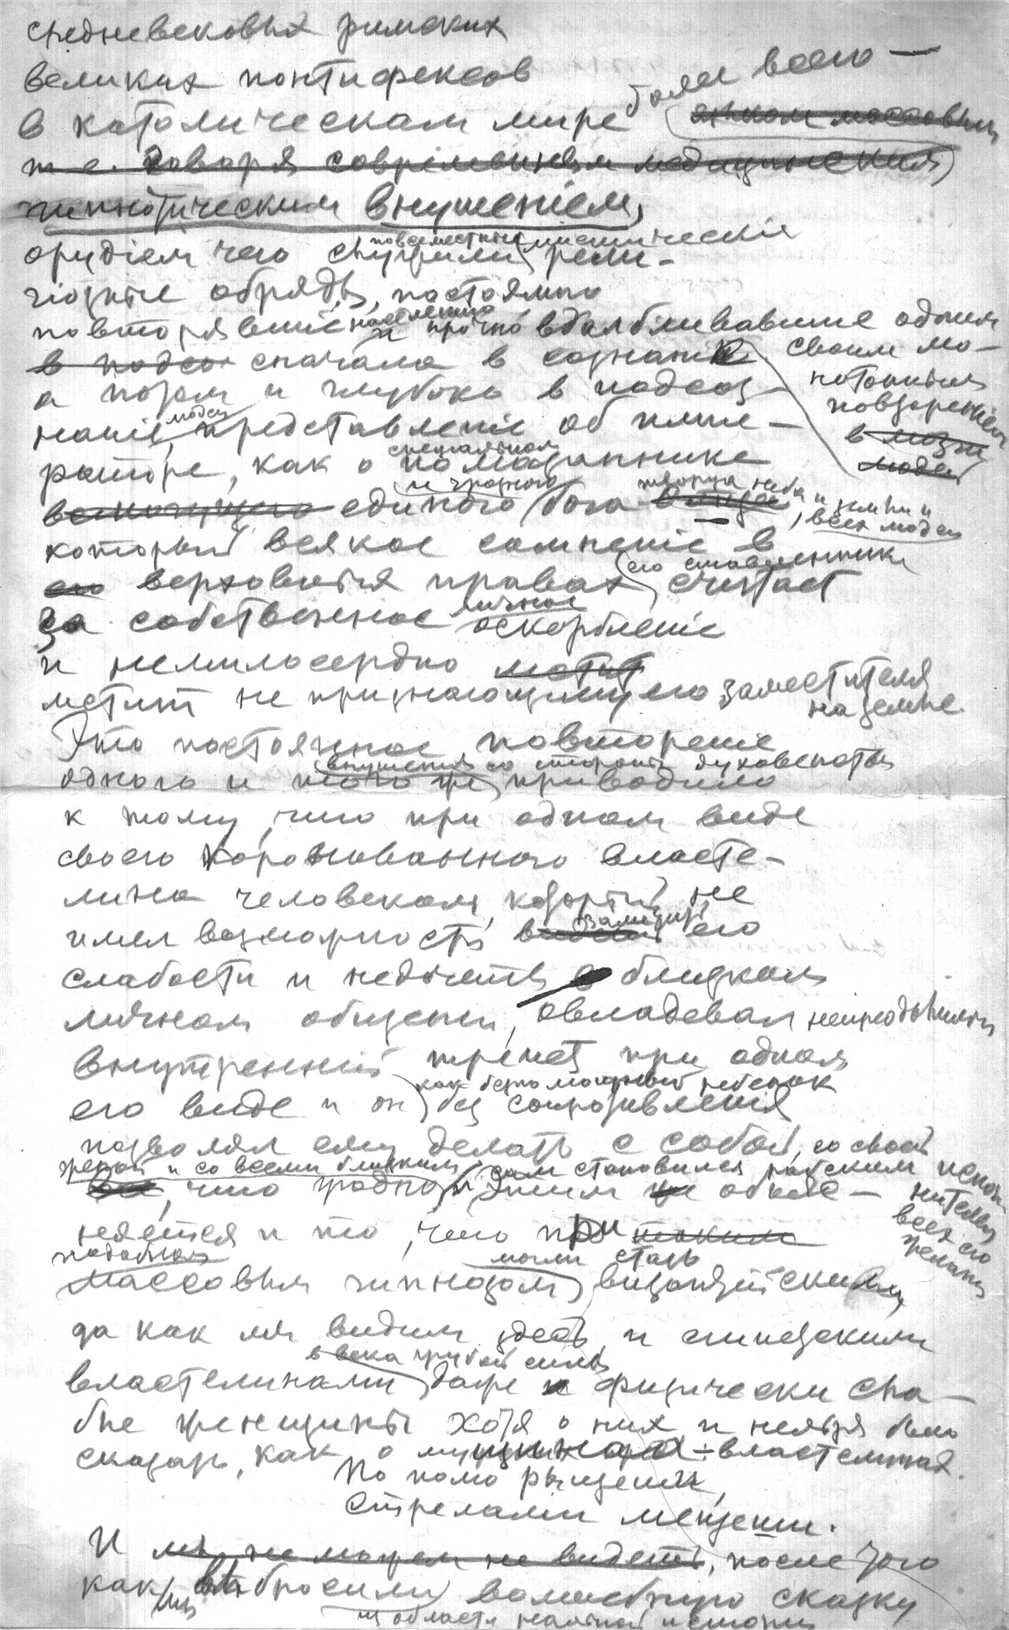 средневековых римских
великих понтифексов
в католическом мире более всего —
этиом массовым
т. е. говоря современным медицинским
гипнотическим внушением,
орудием чего служили повсеместные мистические рели-
гиозные обряды, постоянно
повторявшие населению и прочно вдалбливавшие одним
своим мо-
нотонным
повторением
в мозги
людей
в подсо сначала в сознание
а потом и глубоко в подсоз-
нание людей представление об импе-
раторе, как о специальном помазаннике
всемогущего единого и грозного бога творца неба и земли и
всех людей
который всякое сомнение в
его верховных правах его ставленника считает
за собственное личное оскорбление
и немилосердно мстит
мстит не признающему его заместителя
на земле.
Это постоянное повторение
одного и того же внушения со стороны духовенства приводило
к тому, что при одном виде
своего коронованного власте-
лина человеком, который не
имел возможности заметить его
слабости и недочеты в близком
личном общении, овладевал непреодолимый
внутренний трепет при одном
его виде и он как беспомощный ребенок без сопротивления
позволял ему делать с собой, со своей
женой и со всеми близкими, сам становился рабским испол-
нителем
всех его
желаний
что угодно. Этим же объяс-
няется и то, чего при таким
подобном
массовым гипнозом могли стать византийскими,
да как мы видим здесь, и египетскими
властелинами в века грубой силы даже и физически сла-
бые женщины хотя о них и нельзя было
сказать, как о мужчинах-властелинах.
По полю рыщем,
стрелами мещем.
И мы не можем не видеть, после того
как мы выбросили волшебную сказку
из области реальной истории